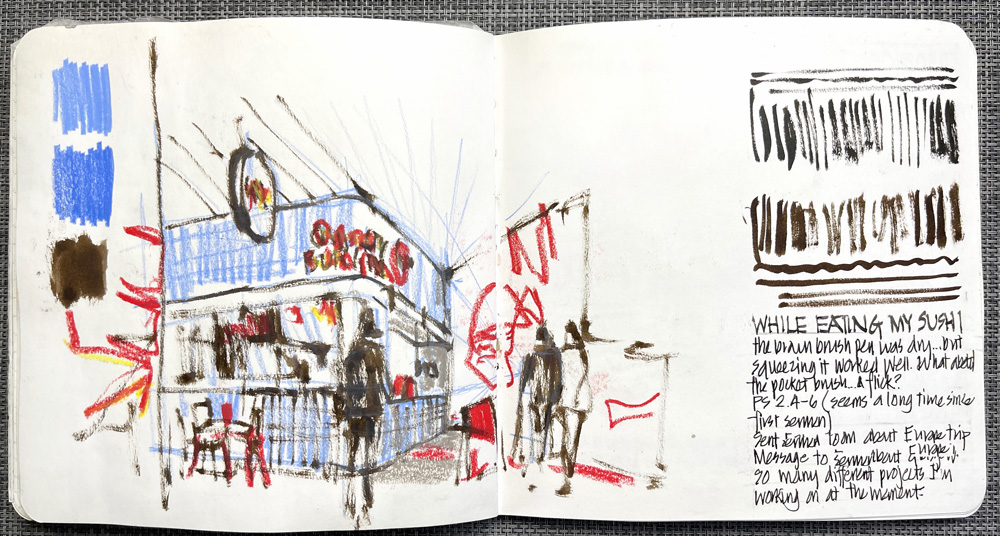 WHILE EATING MY SUSHI
the brown brush pen was dry...but
squeezing it worked well. What about
the pocket brush...a flick?
PS 2.4-6 (seems a long time since
first sermon)
Sent sermon to about Europe trip
Message to sermon about Europe
so many different projects I'm
working on at the moment.